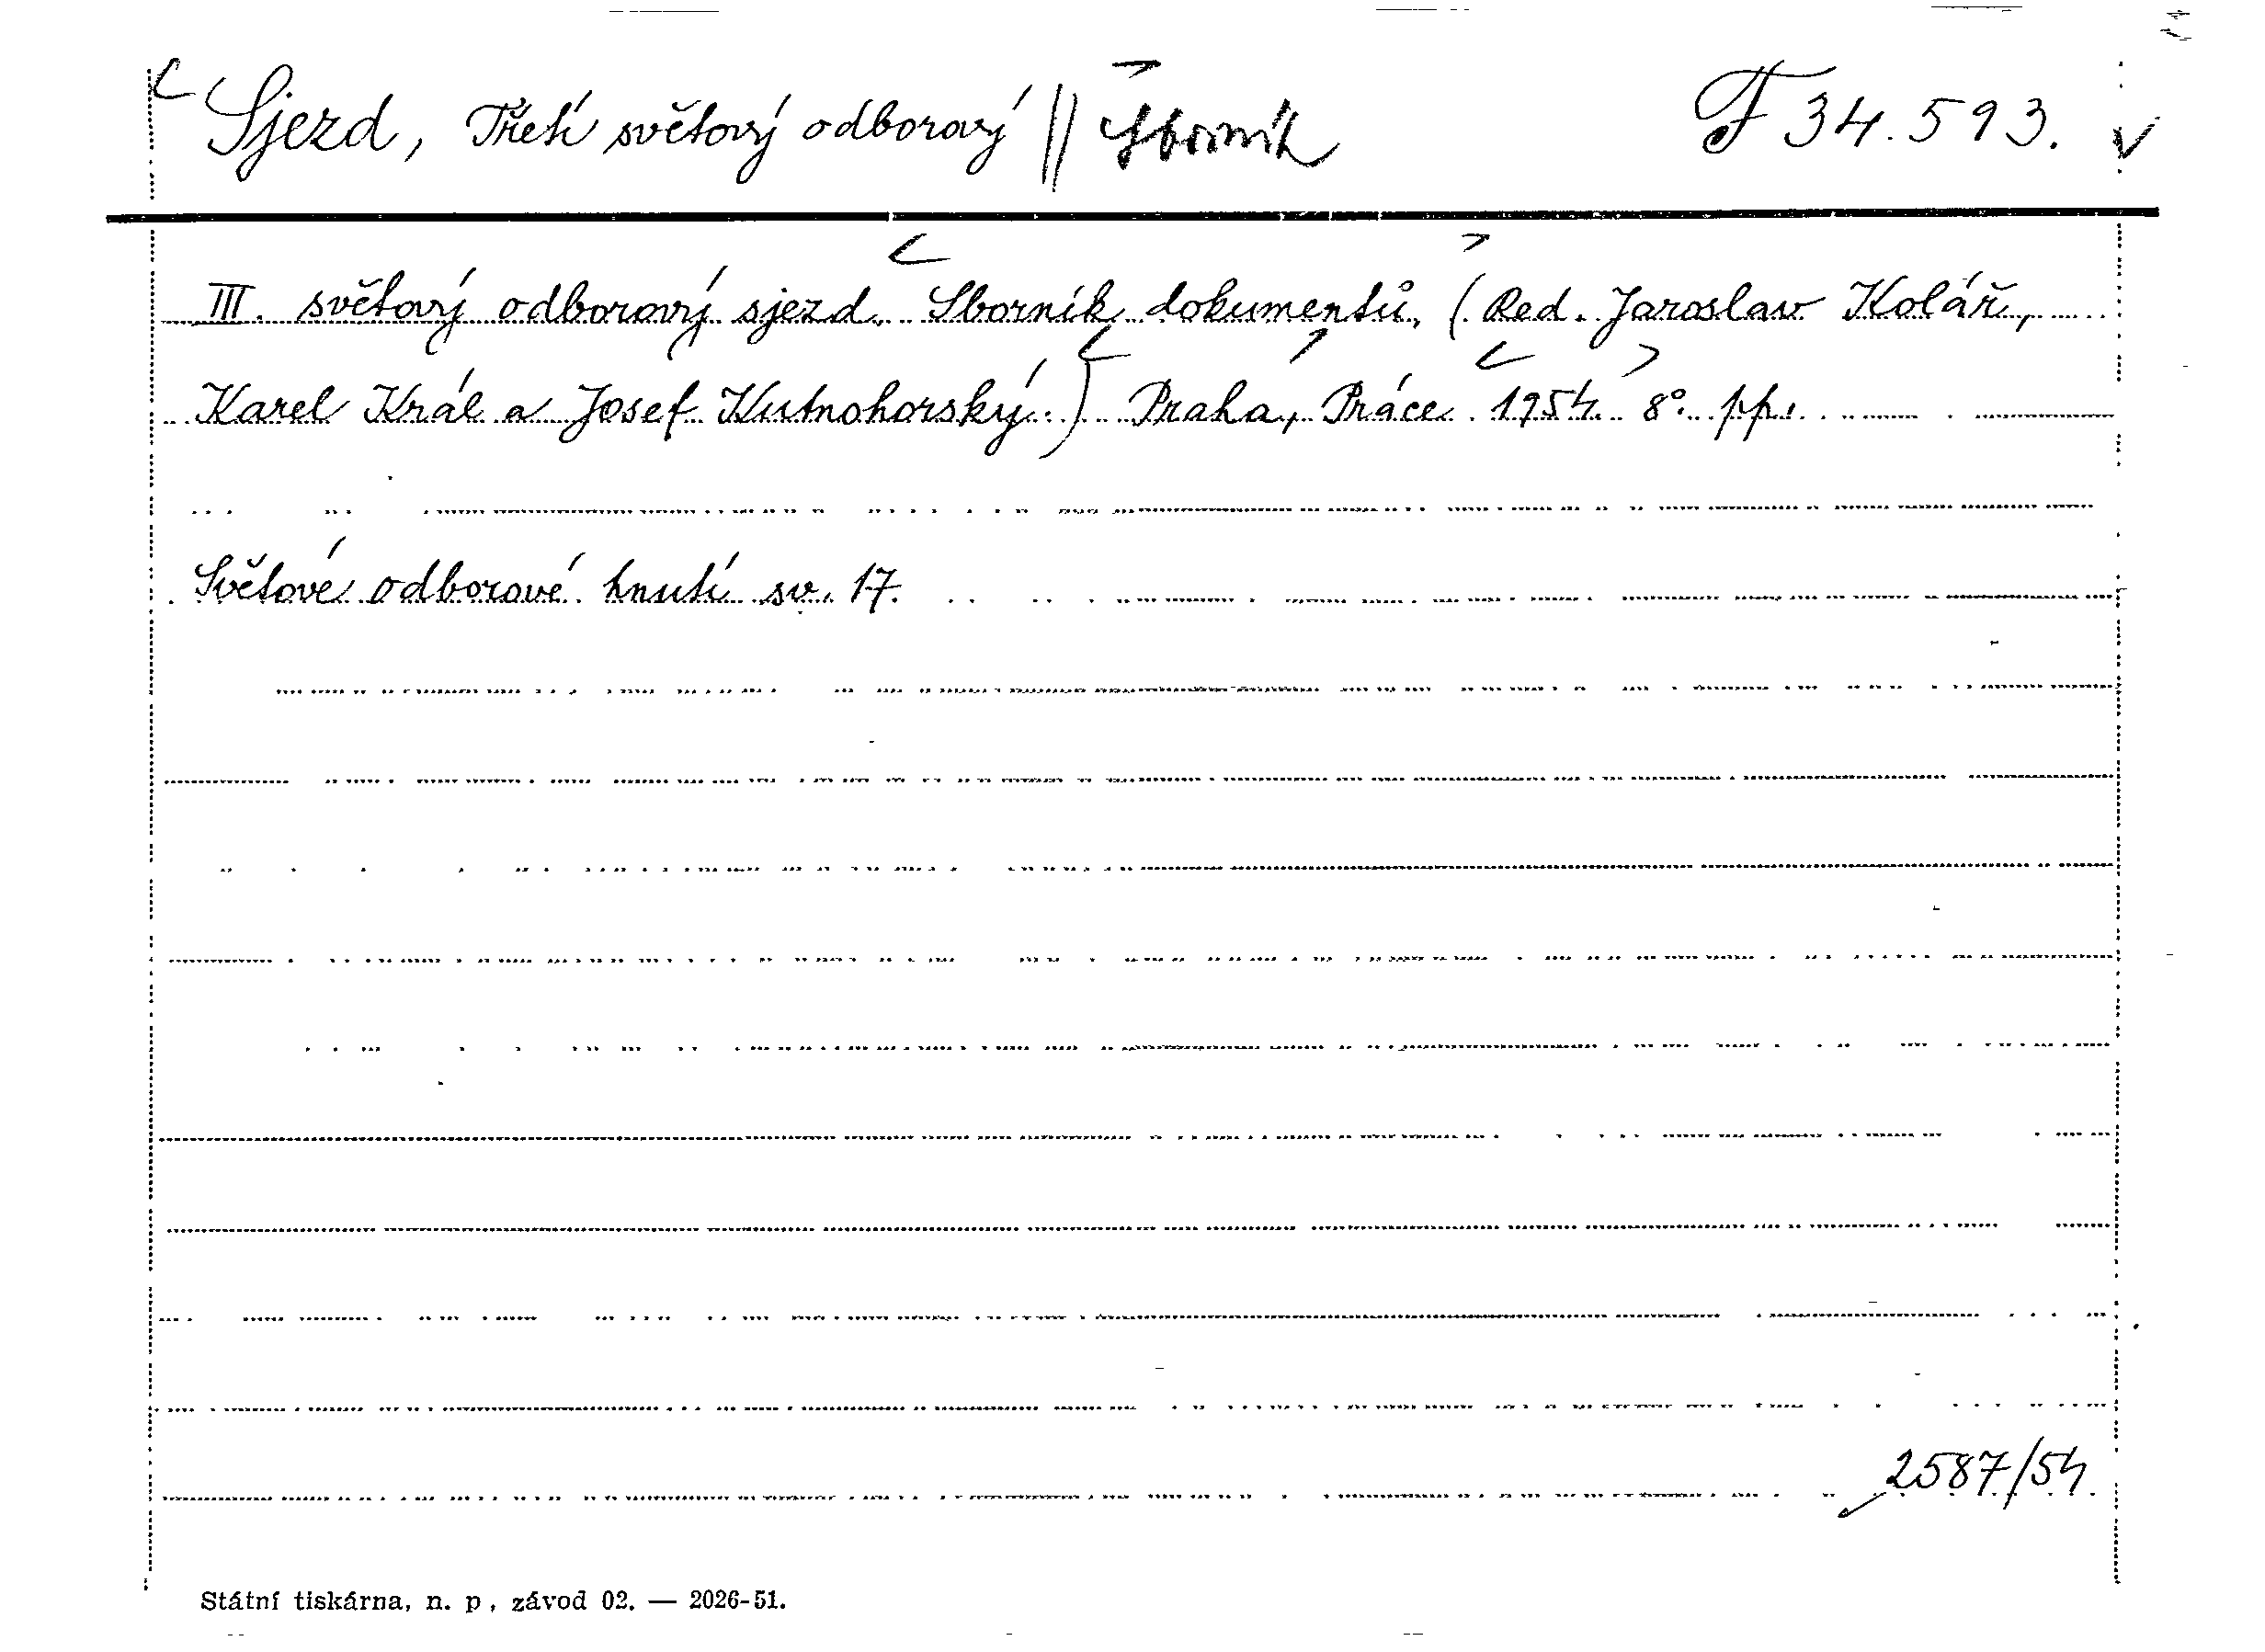 Sjezd, Třetí světový odborový || Sborník F 34.593.
III. světový odborový sjezd. Sborník dokumentů. (Red. Jaroslav Kolář,
Karel Král a Josef Kutnohorský.) Praha, Práce 1954. 8°. pp.
Světové odborové hnutí sv. 17.
2587/54
Státní tiskárna, n. p., závod 02. — 2026-51.